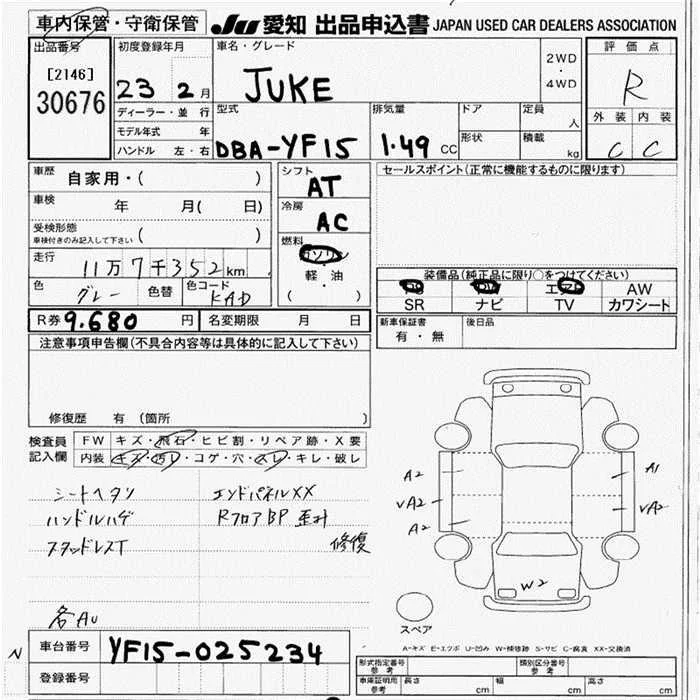 車内保管・守衛保管 JU 愛知 出品申込書 JAPAN USED CAR DEALERS ASSOCIATION
出品番号 [2146] 30676
初度登録年月 23 2月
車名・グレード JUKE
2WD・4WD
評価点 R
外装 C 内装 C
ディーラー・並行
モデル年式 年
ハンドル 左・右
型式 DBA-YF15
排気量 1.49 CC
ドア
形状
定員 人
積載 kg
車歴 自家用・( )
車検 年 月( 日)
受検形態 ( )
車検付きのみ記入して下さい
走行 11万7千352km
色 グレー 色替 色コード KAD
シフト AT
冷房 AC
燃料 ガソリン
・
軽・油
( )
セールスポイント(正常に機能するものに限ります)
装備品(純正品に限り○をつけてください)
PS PW エアB AW
SR ナビ TV カワシート
R券 9.680 円 名変期限 月 日
新車保証書 有・無 後日品
注意事項申告欄(不具合内容等は具体的に記入して下さい)
修復歴 有 (箇所 )
検査員記入欄
FW キズ・飛石・ヒビ割・リペア跡・X要
内装 キズ・汚レ・コゲ・穴・スレ・キレ・破レ
シートヘタリ エンドパネルXX
ハンドルハゲ RフロアBP 歪み
スタッドレスT 修復
各AU
A2 A1
VA2 VA2
A2
W2
スペア
A-キズ E-エクボ U-凹み W-補修跡 S-サビ C-腐食 XX-交換済
N 車台番号 YF15-025234
登録番号
形式指定番号 参考 類別区分番号 参考
車庫証明用 参考 長さ cm 幅 cm 高さ cm